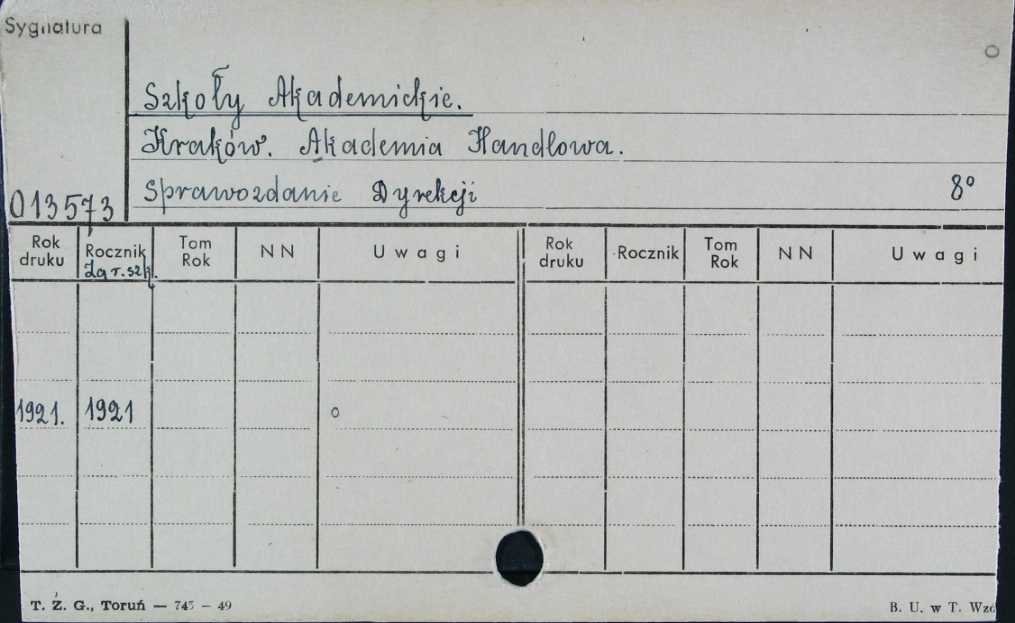 Sygnatura
Szkoły Akademickie.
Kraków. Akademia Handlowa.
Sprawozdanie Dyrekcji 8°
013573
Rok druku Rocznik Za r. szk. Tom Rok NN Uwagi Rok druku Rocznik Tom Rok NN Uwagi
1921. 1921 o
T. Z. G., Toruń — 745 — 49 B. U. w T.